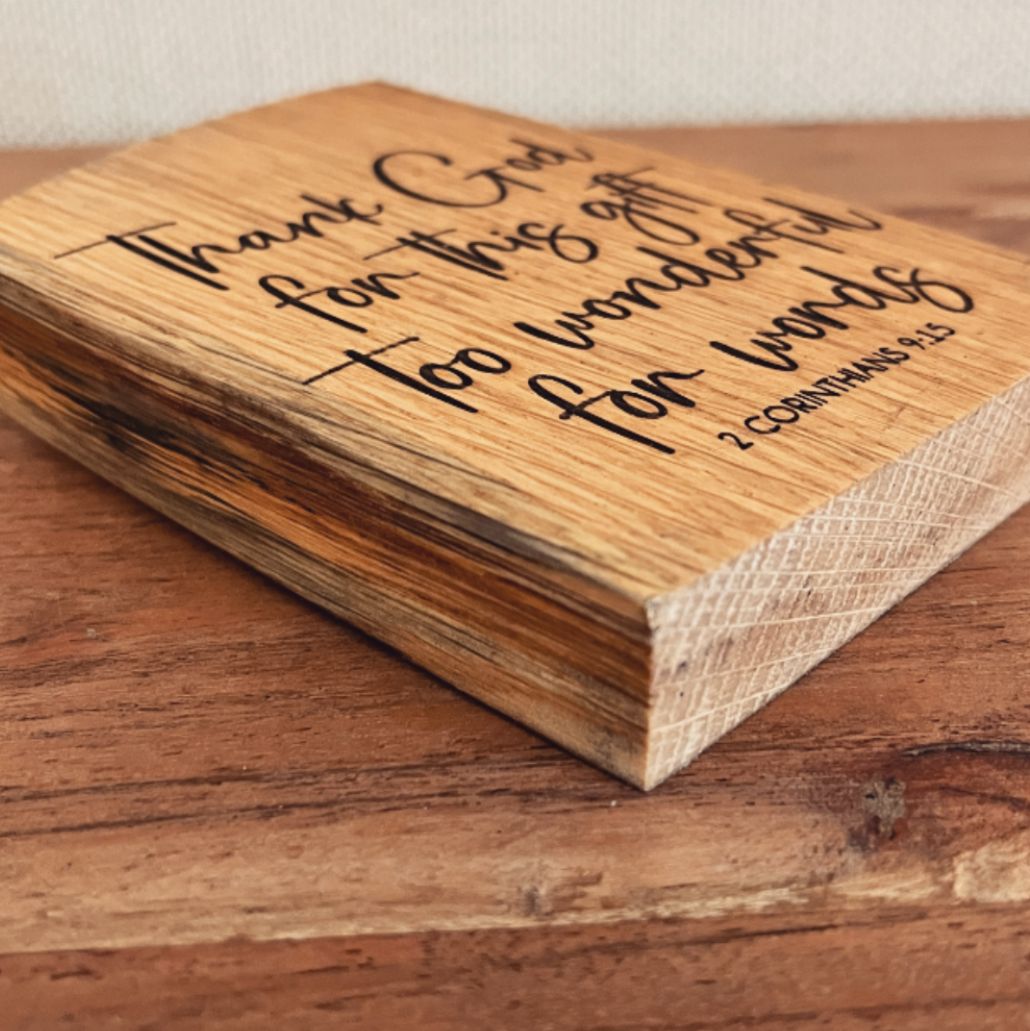 Thank God
for this gift
too wonderful
for words
2 CORINTHIANS 9:15